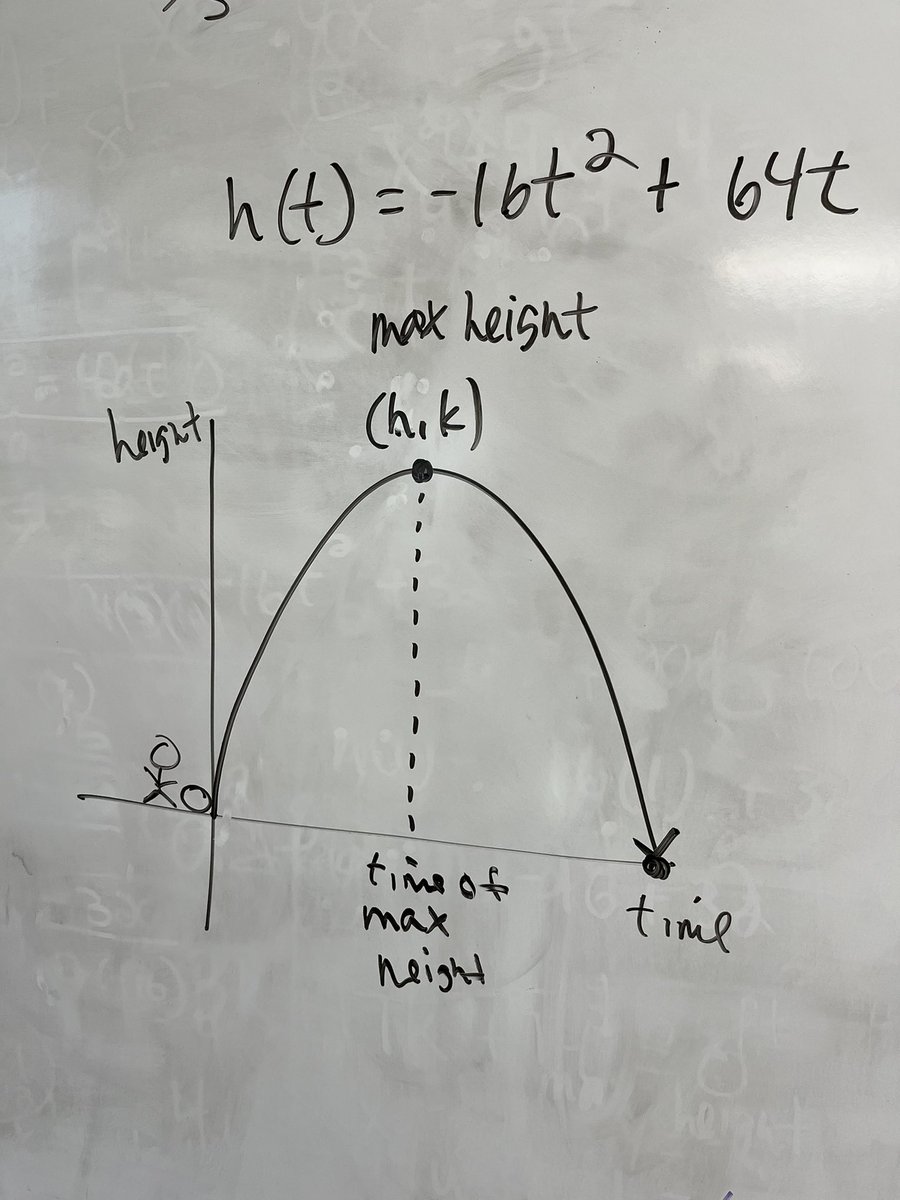 h(t) = -16t² + 64t
max height
(h,k)
height
time of
max
height
time